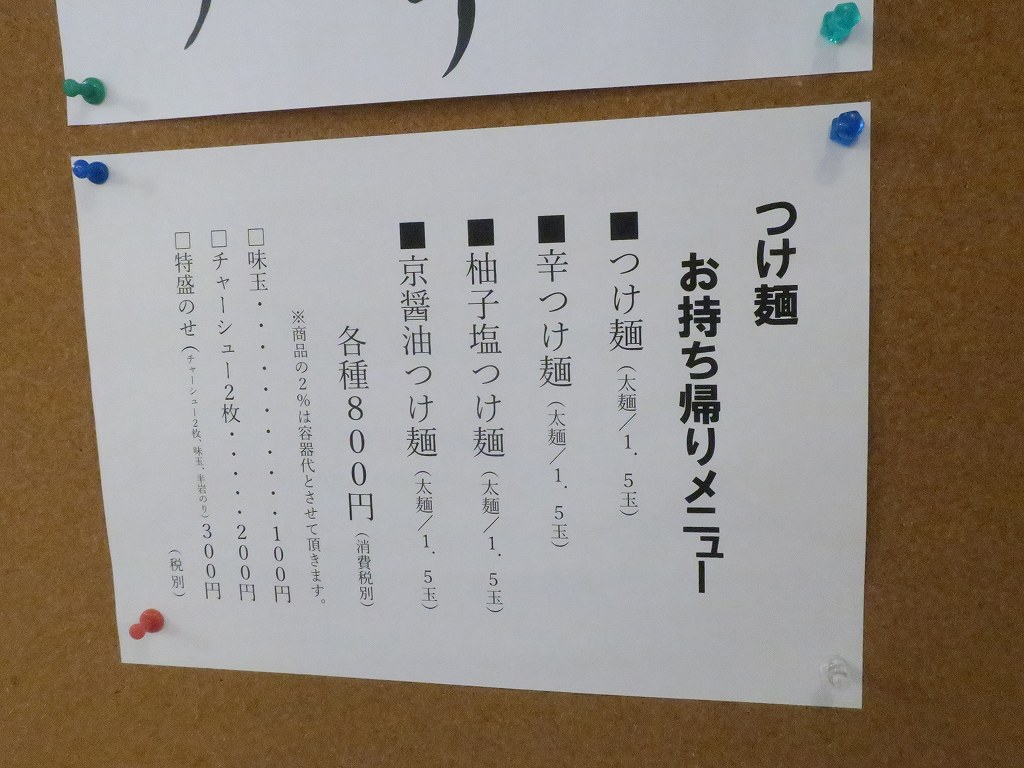 つけ麺
お持ち帰りメニュー
■つけ麺（太麺／1．5玉）
■辛つけ麺（太麺／1．5玉）
■柚子塩つけ麺（太麺／1．5玉）
■京醤油つけ麺（太麺／1．5玉）
各種800円（消費税別）
※商品の2％は容器代とさせて頂きます。
□味玉・・・・・・・・・・・100円
□チャーシュー2枚・・・・・200円
□特盛のせ（チャーシュー2枚、味玉、半岩のり）300円
（税別）